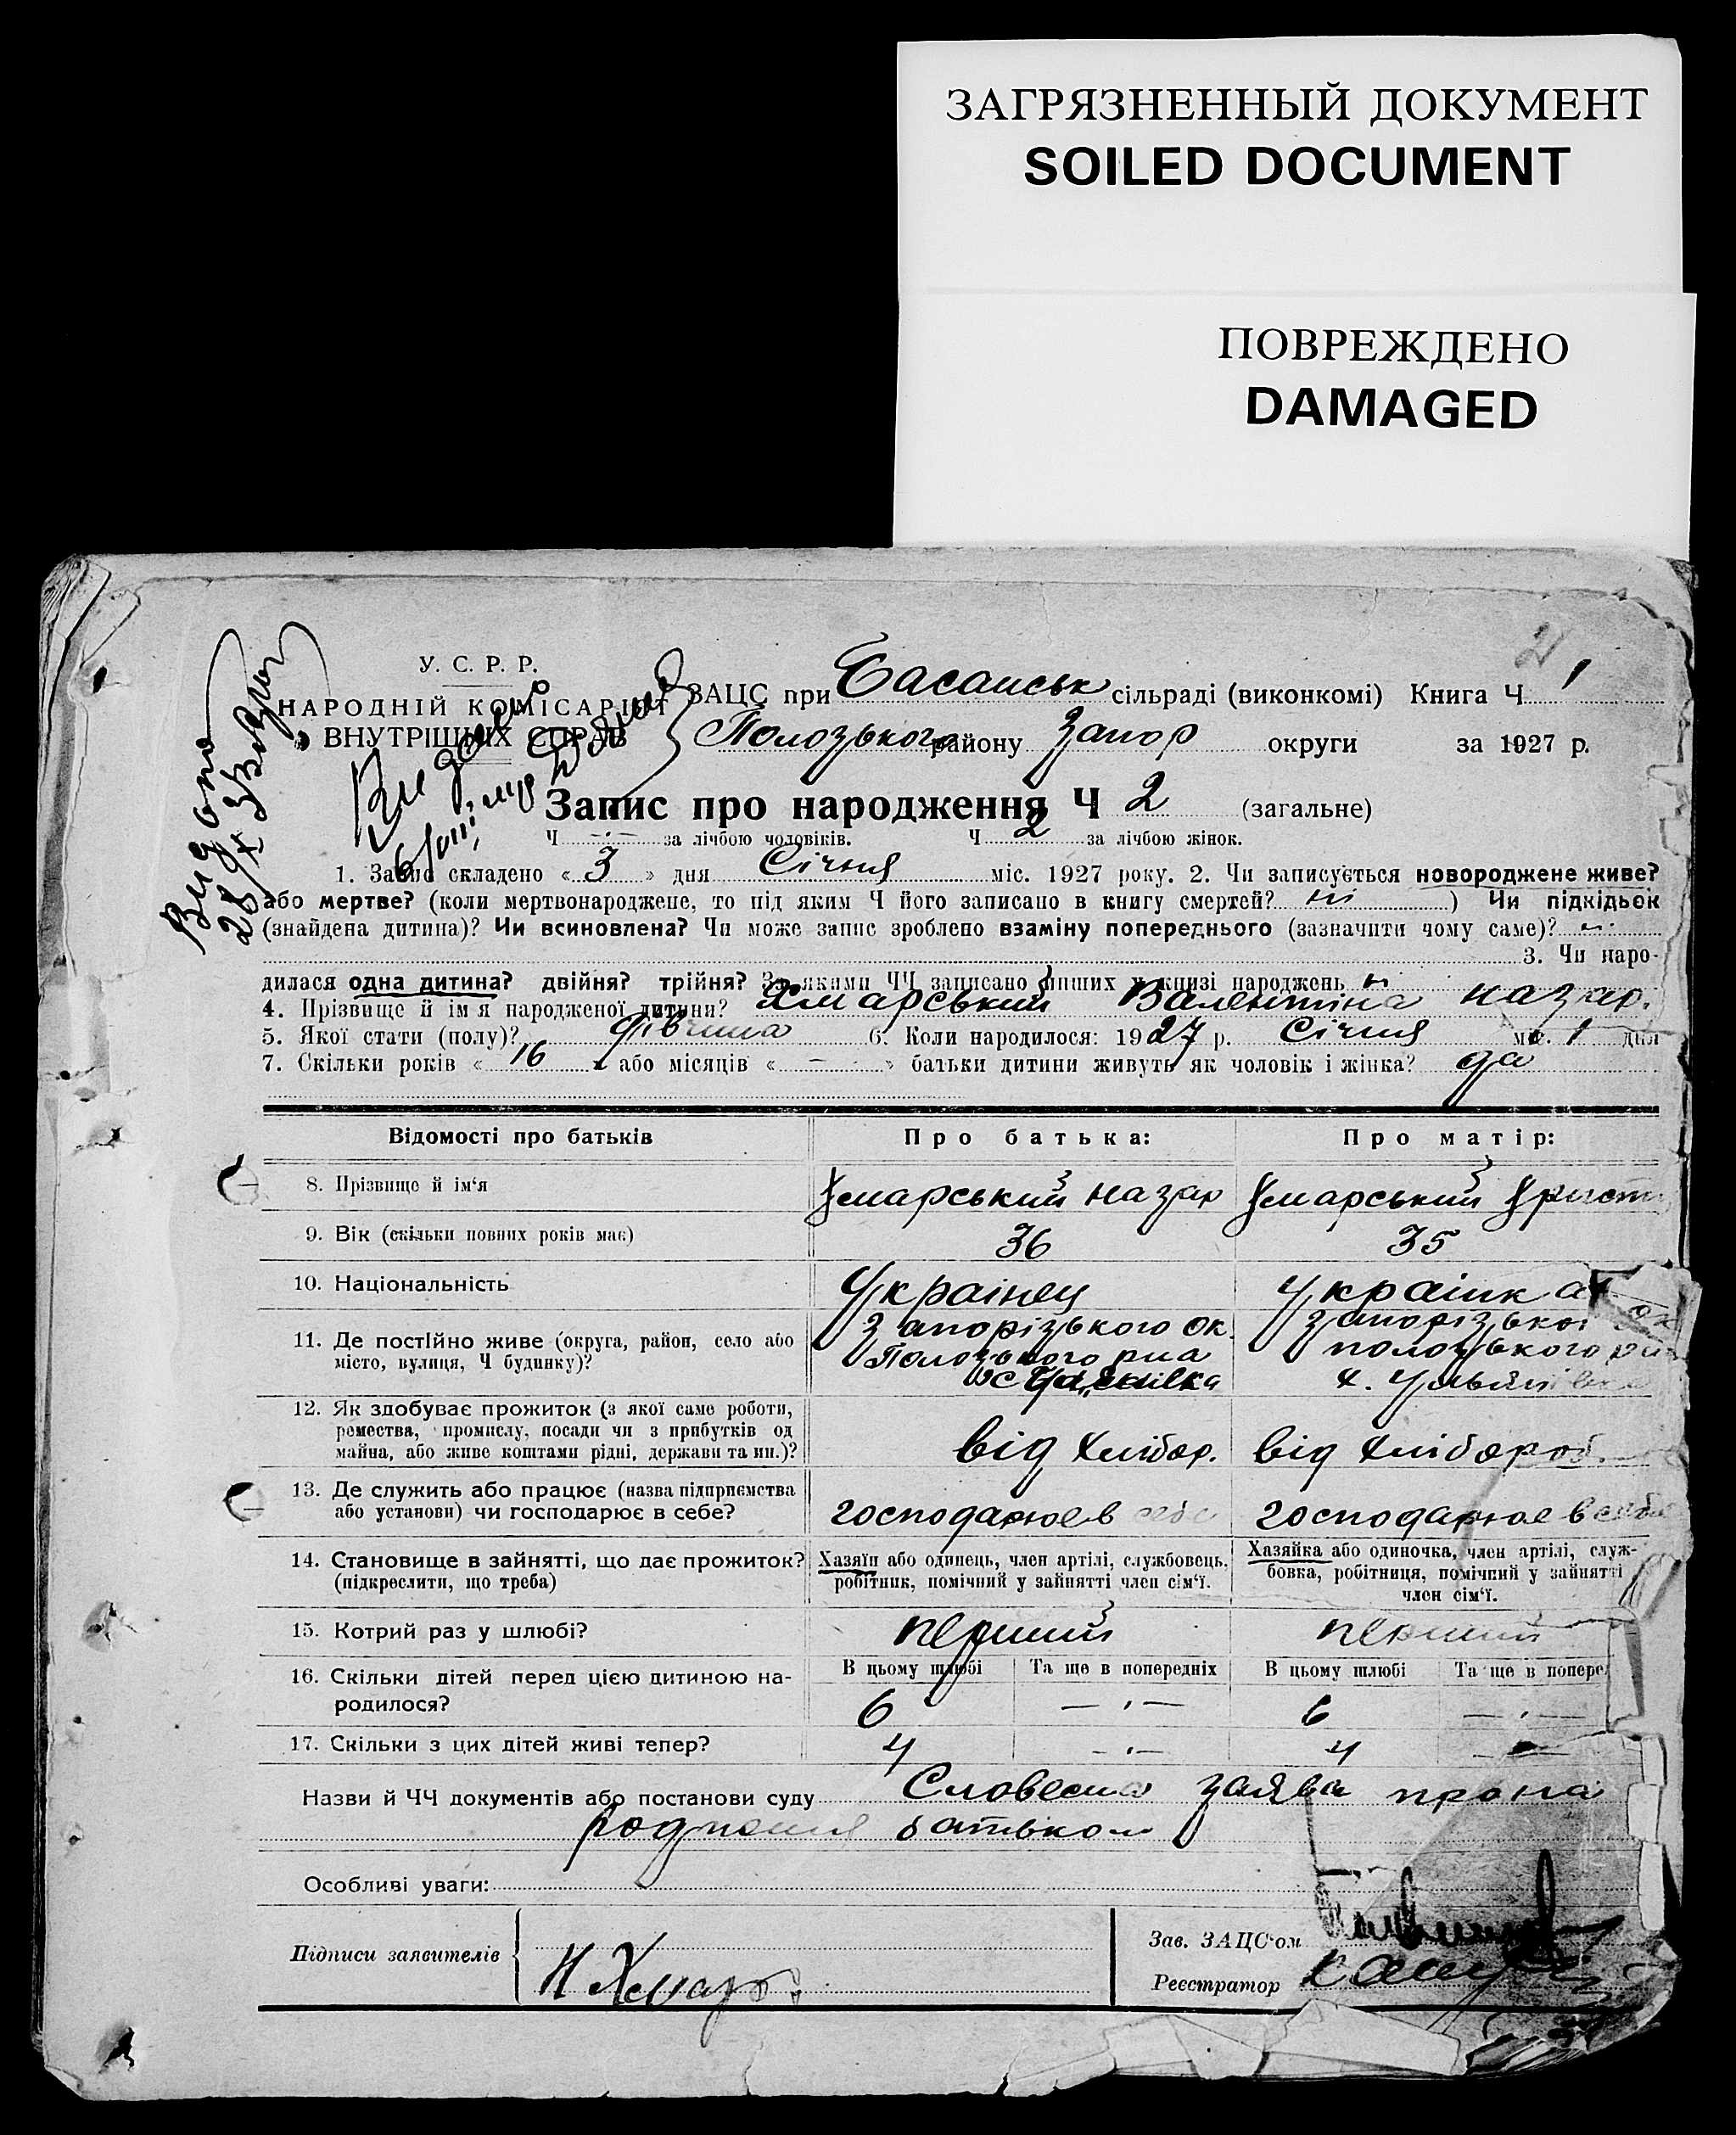 ЗАГРЯЗНЕННЫЙ ДОКУМЕНТ
SOILED DOCUMENT
ПОВРЕЖДЕНО
DAMAGED
2
У. С. Р. Р.
НАРОДНІЙ КОМІСАРІЯТ
ВНУТРІШНІХ СПРАВ
Видано
28/X
Видано
ЗАЦС при Басанськ сільраді (виконкомі) Книга Ч 1
Полозького району Запор округи за 1927 р.
Запис про народження Ч 2 (загальне)
Ч — за лічбою чоловіків. Ч 2 за лічбою жінок.
1. Запис складено « 3 » дня Січня міс. 1927 року. 2. Чи записується новороджене живе?
або мертве? (коли мертвонароджене, то під яким Ч його записано в книгу смертей? ні ) Чи підкідьок
(знайдена дитина)? Чи всиновлена? Чи може запис зроблено взаміну попереднього (зазначити чому саме)?
3. Чи наро-
дилася одна дитина? двійня? трійня? За якими ЧЧ записано інших у книзі народжень
4. Прізвище й ім'я народженої дитини? Хмарський Валентіна Назар.
5. Якої стати (полу)? дівчина 6. Коли народилося: 1927 р. Січня міс. 1 дня
7. Скільки років « 16 » або місяців « — » батьки дитини живуть як чоловік і жінка? да
Відомості про батьків Про батька: Про матір:
8. Прізвище й ім'я Хмарський Назар Хмарський Христ
9. Вік (скільки повних років має) 36 35
10. Національність Українец Українка
11. Де постійно живе (округа, район, село або Запорізького ок. Запорізької
місто, вулиця, Ч будинку)? Полозького рна Полозького
х.
12. Як здобуває прожиток (з якої саме роботи,
ремества, промислу, посади чи з прибутків од
майна, або живе коштами рідні, держави та ин.)? від хлібор. від хлібороб.
13. Де служить або працює (назва підприємства
або установи) чи господарює в себе? господарює в себе господарює в себе
14. Становище в зайнятті, що дає прожиток? Хазяїн або одинець, член артілі, службовець, Хазяйка або одиночка, член артілі, служ-
(підкреслити, що треба) робітник, помічний у зайнятті член сім'ї. бовка, робітниця, помічний у зайнятті
член сім'ї.
15. Котрий раз у шлюбі? перший перший
16. Скільки дітей перед цією дитиною на- В цьому шлюбі Та ще в попередніх В цьому шлюбі Та ще в попере
родилося? 6 — 6 —
17. Скільки з цих дітей живі тепер? 4 — 4 —
Назви й ЧЧ документів або постанови суду Словесна заява про на
родження батьком
Особливі уваги:
Підписи заявителів Н Хмар
Зав. ЗАЦС'ом
Реєстратор